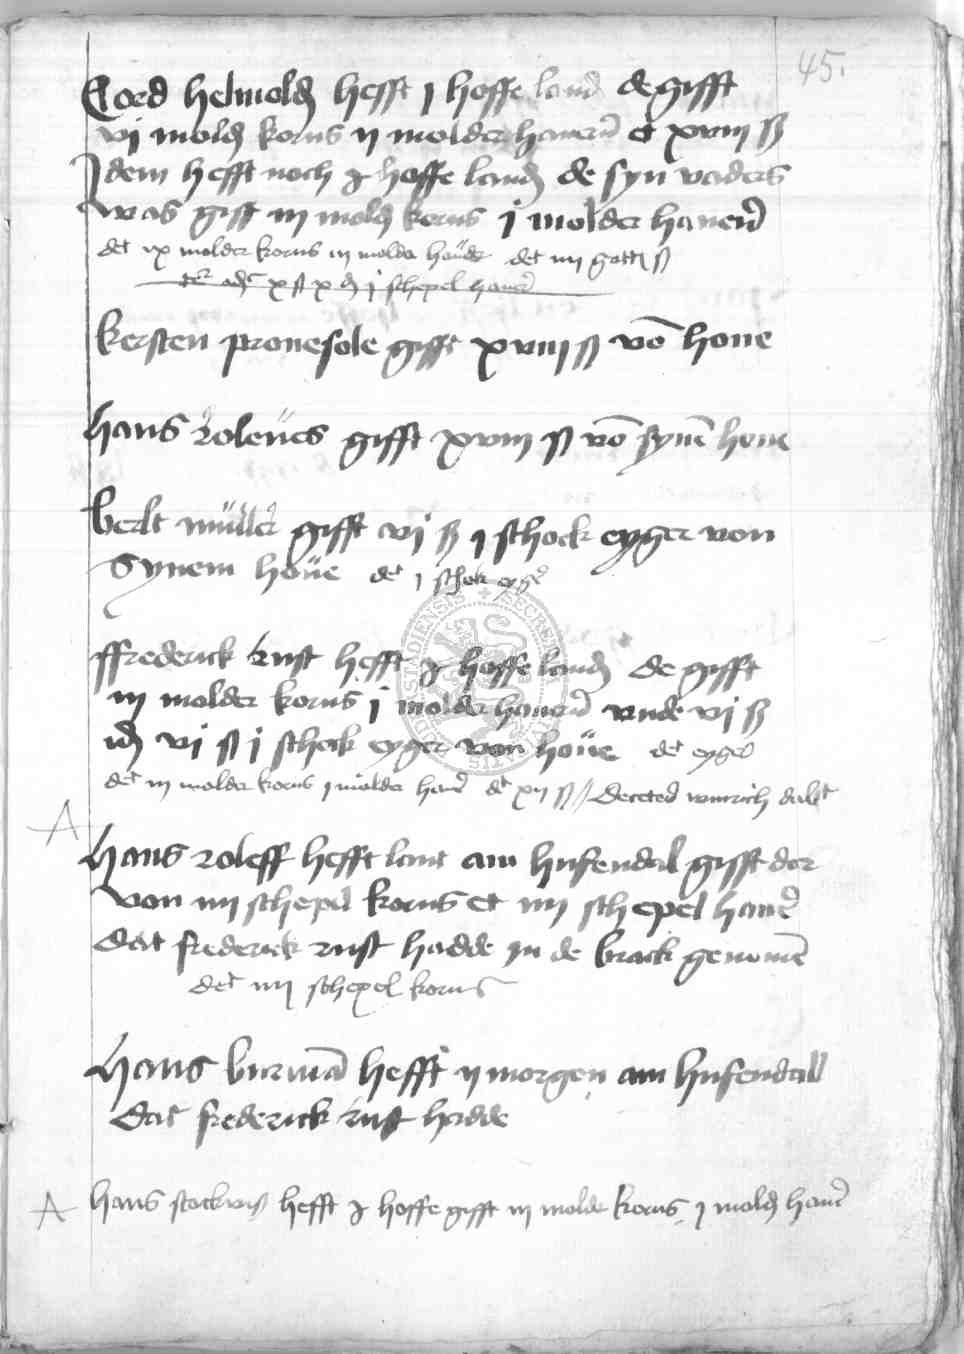 45.
Cord helmold hefft j hoffe land de gifft
vj mold korns ij molder haueren et xviij ß
Idem hefft noch j hoffe land de syn vaders
was gift iij mold korns j molder haueren
det ix molder korns iij molder det iiij ß
x ß x j schepel hauer
kersten pronesole gifft xviij ß vō houe
hans roleues gifft xviij ß vō synē houe
berlt müller gifft vj ß j schock eyger von
Synem houe det j schok eyger
ffrederick rust hefft hoffe land de gifft
iij molder korns j molder haueren vnde vj ß
vj ß j schock eyger von houe det eyger
det iij molder korns j molder hauer det xij ß
hans roleff hefft lant am husendal gifft dar
von iiij schepel korns et iiij schepel hauer
dat frederick rust hadde in de brack genomē
det iiij schepel korns
hans burmā hefft ij morgen am husendall
dat frederick rust hadde
hans hefft hoffe gifft iij molder korns j mold hauer
SECRETUM